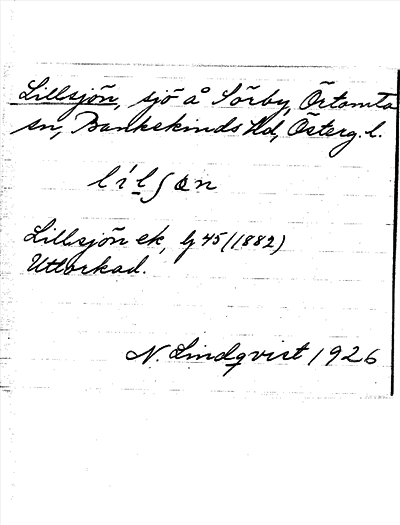 Lillsjön, sjö å Sörby, Örtomta
sn, Bankekinds Hd, Österg. l.
lílʃøn
Lillsjön ek, bj 45 (1882)
Uttorkad.
N. Lindqvist 1926